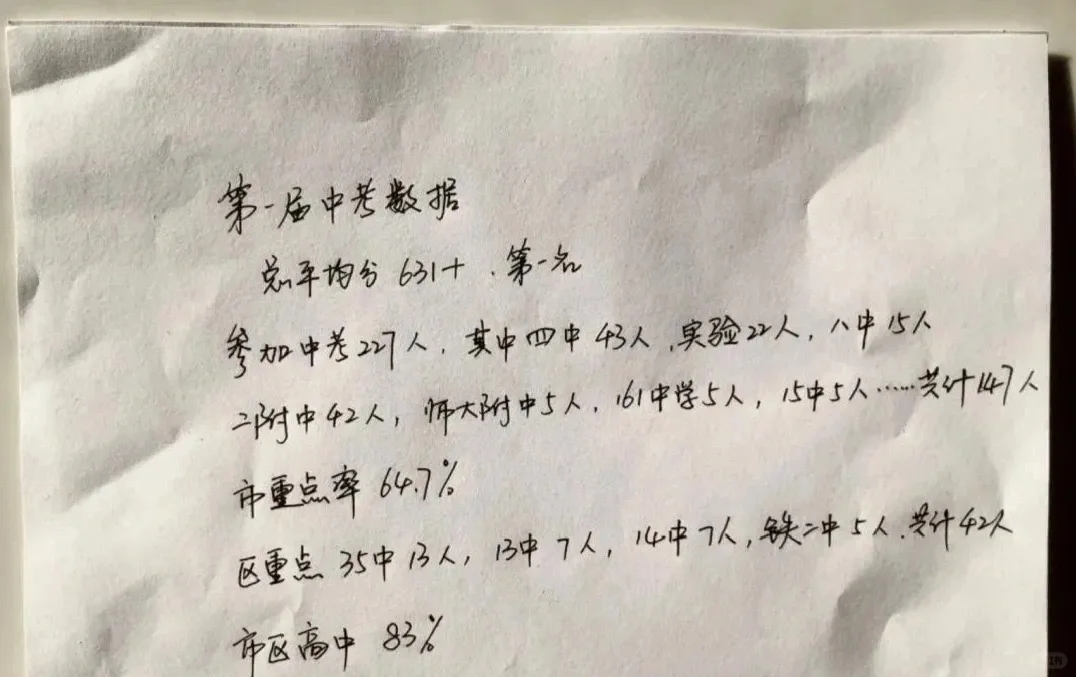 第一届中考数据
总平均分 631+ . 第一名
参加中考227人, 其中四中43人, 实验22人, 八中15人
二附中42人, 师大附中5人, 161中学5人, 15中5人……共计147人
市重点率 64.7%
区重点 35中13人, 13中7人, 14中7人, 铁二中5人. 共计42人
市区高中 83%